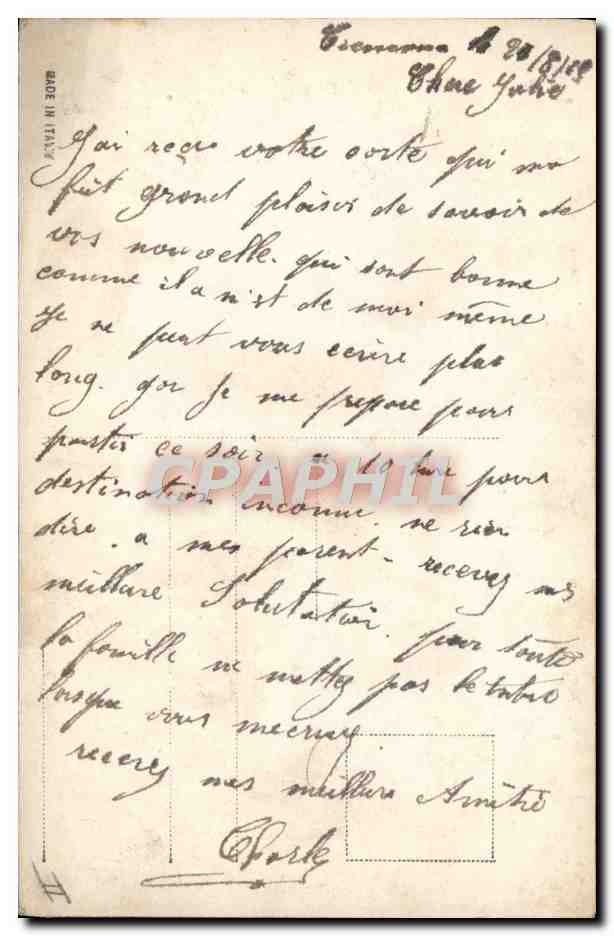 le 20/8/18
Chere Julie
MADE IN ITALY
J'ai reçu votre carte qui ma
fût grand plaisir de savoir de
vos nouvelle. qui sont bonne
comme il a n'est de moi même
Je ne peut vous ecrire plus
long. gor Je me prepare pour
partir ce soir. a 10 hure pour
destination inconnu. ne rien
dire. a mes parent. recevez mes
meillure Salutation. pour toute
la famille ne mettez pas de timbre
lorsque vous mecrivez
recevez mes meillure Amitié
Charle
II
CPAPHIL